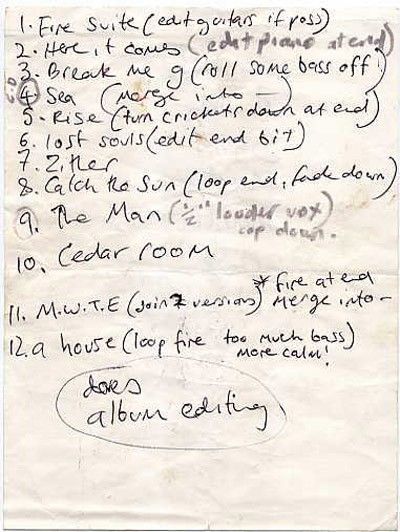 1. Fire Suite (edit guitars if poss)
2. Here it comes (edit piano at end)
3. Break me g (roll some bass off)
4 Sea (merge into —
5. Rise (turn crickets down at end)
6. lost souls (edit end bit)
7. Zither
8. Catch the Sun (loop end, fade down)
9. The Man (louder vox
cop down.
10. Cedar room
11. M.W.T.E (join 2 versions) * fire at end
merge into —
12. a house (loop fire too much bass)
more calm!
doves
album editing